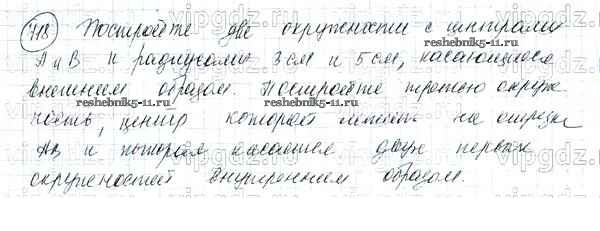 718 Постройте две окружности с центрами
А и В и радиусами 3 см и 5 см, касающиеся
внешним образом. Постройте третью окруж-
ность, центр которой лежит на отрезке
АВ и которая касается двух первых
окружностей внутренним образом.
reshebnik5-11.ru
reshebnik5-11.ru
reshebnik5-11.ru
reshebnik5-11.ru
vipgdz.ru